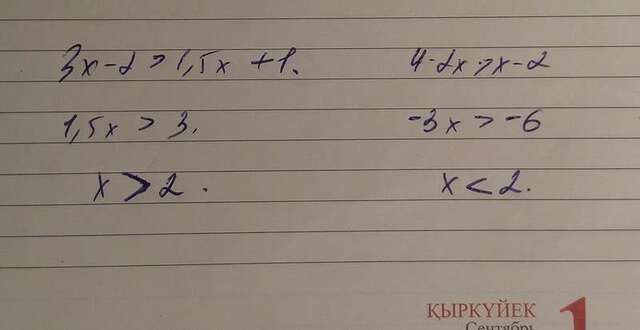 3x-2>1,5x+1.
4-2x>x-2
1,5x>3.
-3x>-6
x>2.
x<2.
ҚЫРКҮЙЕК
Сентябрь
1